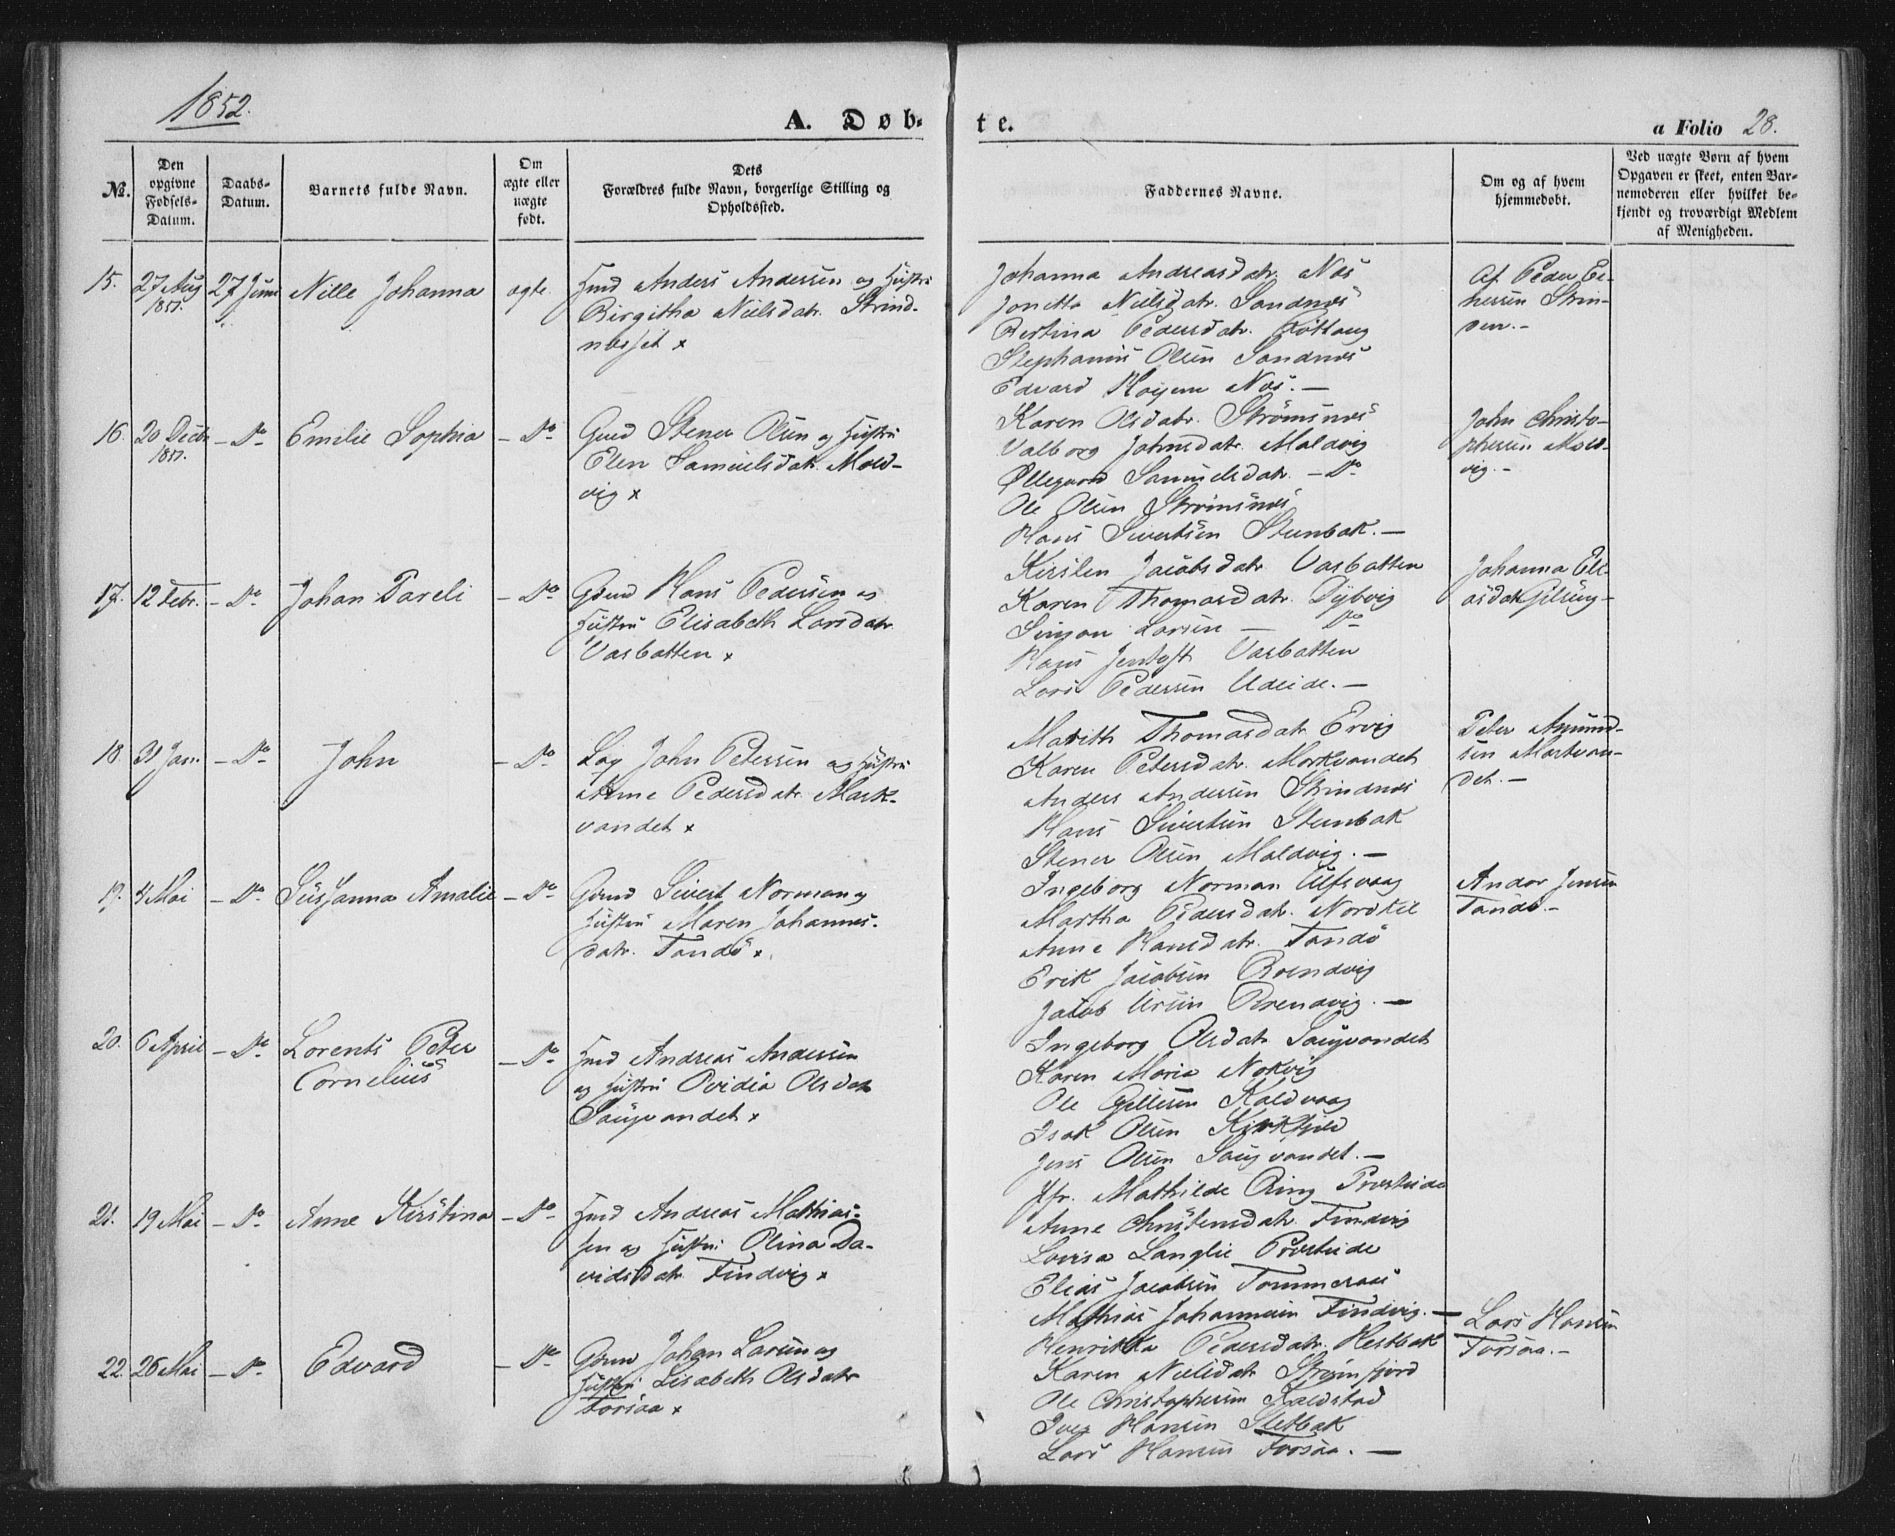 1852.
A. Døb-
te.
a Folio 28.
No.
Den opgivne Fødsels-Datum.
Daabs-Datum.
Barnets fulde Navn.
Om ægte eller uægte født.
Dets Forældres fulde Navn, borgerlige Stilling og Opholdssted.
Faddernes Navne.
Om og af hvem hjemmedøbt.
Ved uægte Børn af hvem Opgaven er skeet, enten Barnemoderen eller hvilket bekjendt og troværdigt Medlem af Menigheden.
15. 27 Aug 1851. 27 Juni Nille Johanna ægte
Huus Anders Andersen og Hustru
Birgitha Nielsdatr. Strind-
Johanna Andreasdatr. Næs
Jonetta Nielsdatr. Sandnæs
Bertina Pedersdatr.
Stephanus Olsen Sandnæs
Edvard Næs. —
Af Peder
16. 20 Decbr 1851. – Do Emilie Sophia – Do
Gaard Stener Olsen og Hustru
Elen Samuelsdatr. Mold-
vig x
Karen Olsdatr. Strömsnæs
Valborg Johnsdatr. Moldvig
Øllegaard Samuelsdatr. – Do
Ole Olsen Strömsnæs
Hans Sivertsen Steenbak. —
John Christo-
phersen Mold-
vig. –
17. 12 Febr. – Do Johan Pareli – Do
Gaard Hans Pedersen og
Hustru Elisabeth Larsdatr.
Vasbotten x
Kirsten Jacobsdatr Vasbotten
Karen Thomasdatr. Dybvig
Simon Larsen — Do
Hans Jentoft Vasbotten
Lars Pedersen —
Johanna Eli-
18. 31 Jan. – Do John – Do
Log John Petersen og Hustru
Anne Pedersdatr. Mork-
vandet x
Marith Thomasdatr Ervig
Karen Petersdatr. Morkvandet
Anders Andersen Strindnæs
Hans Sivertsen Steenbak
Stener Olsen Moldvig. —
Peter Amund-
sen Morkvan-
det. –
19. 4 Mai – Do Susanna Amalie – Do
Gaard Sivert Norman og
Hustru Maren Johannes-
datr. Tandö x.
Ingeborg Norman Ulfsvaag
Martha Pedersdatr. Nordkil
Anne Hansdatr. Tandö
Erik Jacobsen
Jacob —
Andor Jensen
Tandö. –
20. 6 April – Do Lorents Peter
Cornelius – Do
Huus Andreas Andersen
og Hustru Ovidia Olsdatr
Saugvandet x
Ingeborg Olsdatr Saugvandet
Karen Maria
Ole Kaldvaag
Isak Olsen Kirkfjeld
Jens Olsen Saugvandet. —
21. 19 Mai – Do Anne Kirstina – Do
Huus Andreas Mathias-
sen og Hustru Olina Da-
vidsdatr Findvig x
Jfr. Mathilde Ring Presteide
Anne Christensdatr Findvig
Lovisa Langlie Presteide
Elias Jacobsen Tommeraas
Mathias Johannesen Findvig. —
22. 26 Mai – Do Edvard – Do
Gaard Johan Larsen og
Hustru Lisabeth Olsdatr
Forsaa x
Henrikka Pedersdatr. Hestbak
Karen Nielsdatr Strømfjord
Ole Christophersen Kaldstad
Iver Hansen Sletbak
Lars Hansen Forsaa. —
Lars Hansen
Forsaa. –